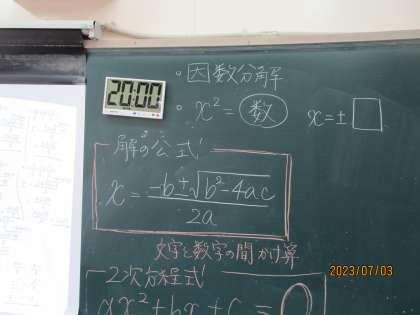 20:00
・因数分解
・x² = 数 x = ±□
解の公式
x = (-b ± √(b² - 4ac)) / 2a
文字と数字の間かけ算
2次方程式
ax² + bx + c = 0
2023/07/03